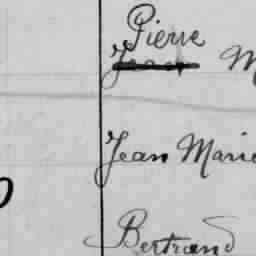 Pierre
M
Jean Marie
Bertrand